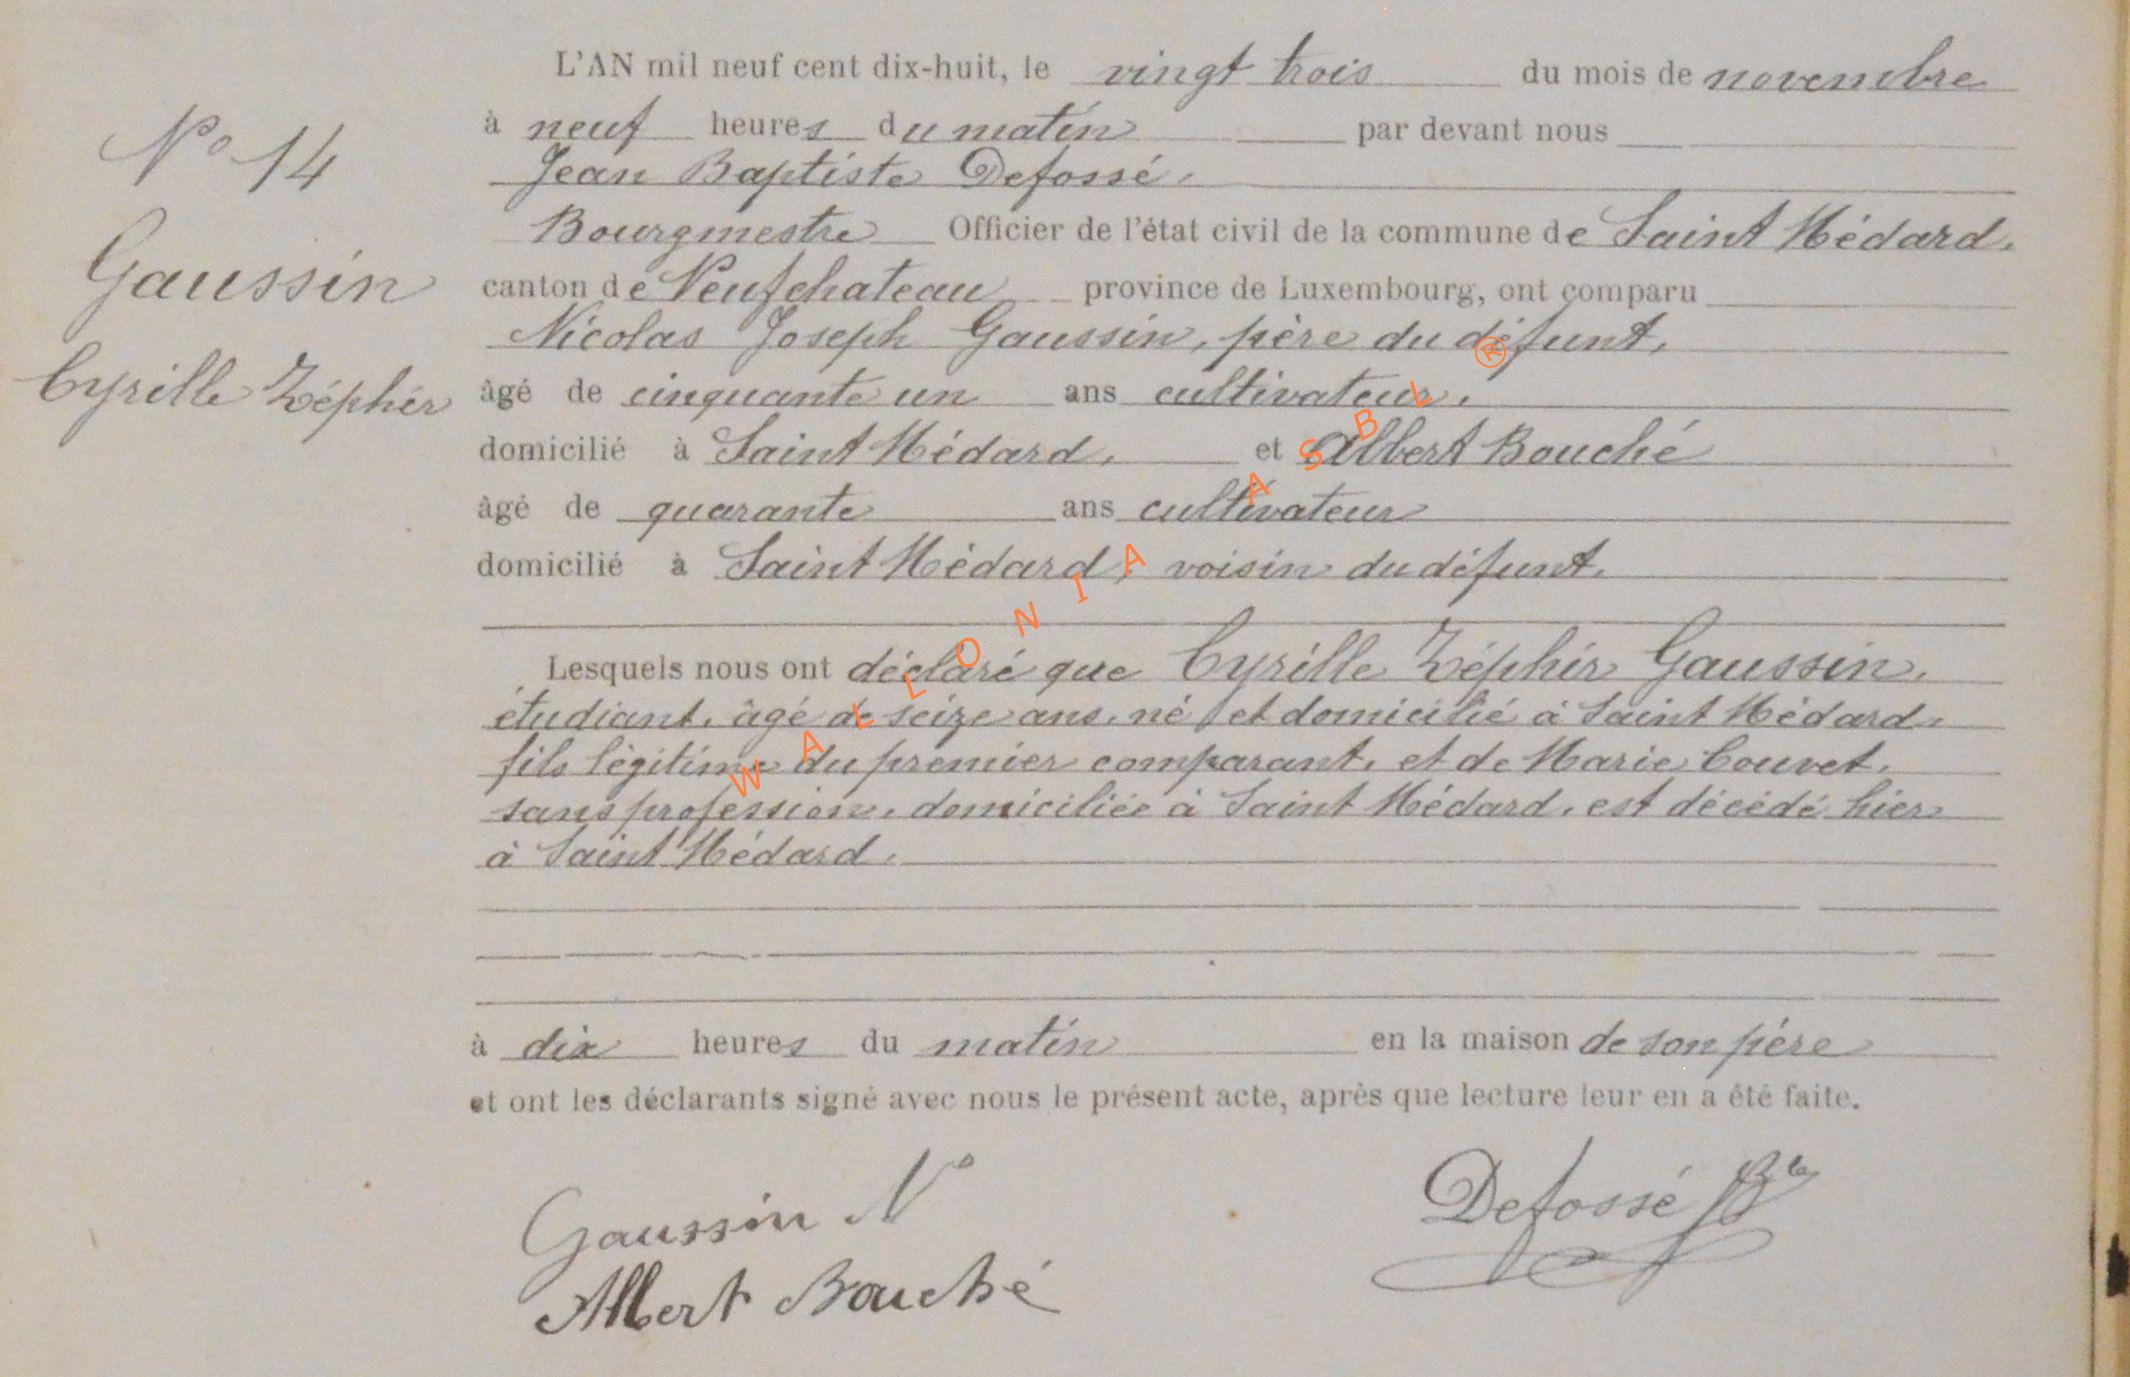 L'AN mil neuf cent dix-huit, le vingt trois du mois de novembre
à neuf heures du matin par devant nous
Jean Baptiste Defossé.
Bourgmestre Officier de l'état civil de la commune de Saint Médard.
canton de Neufchateau province de Luxembourg, ont comparu
Nicolas Joseph Gaussin, père du défunt,
âgé de cinquante un ans cultivateur.
domicilié à Saint Médard, et Albert Bouché
âgé de quarante ans cultivateur
domicilié à Saint Médard, voisin du défunt.
Lesquels nous ont déclaré que Cyrille Zéphir Gaussin,
étudiant, âgé de seize ans, né et domicilié à Saint Médard,
fils légitime du premier comparant, et de Marie Couvet,
sans profession, domiciliée à Saint Médard, est décédé hier
à Saint Médard.
à dix heures du matin en la maison de son père
et ont les déclarants signé avec nous le présent acte, après que lecture leur en a été faite.
Gaussin N
Albert Bouché
Defossé JB
N° 14
Gaussin
Cyrille Zéphir
WALLONIA ASBL ®